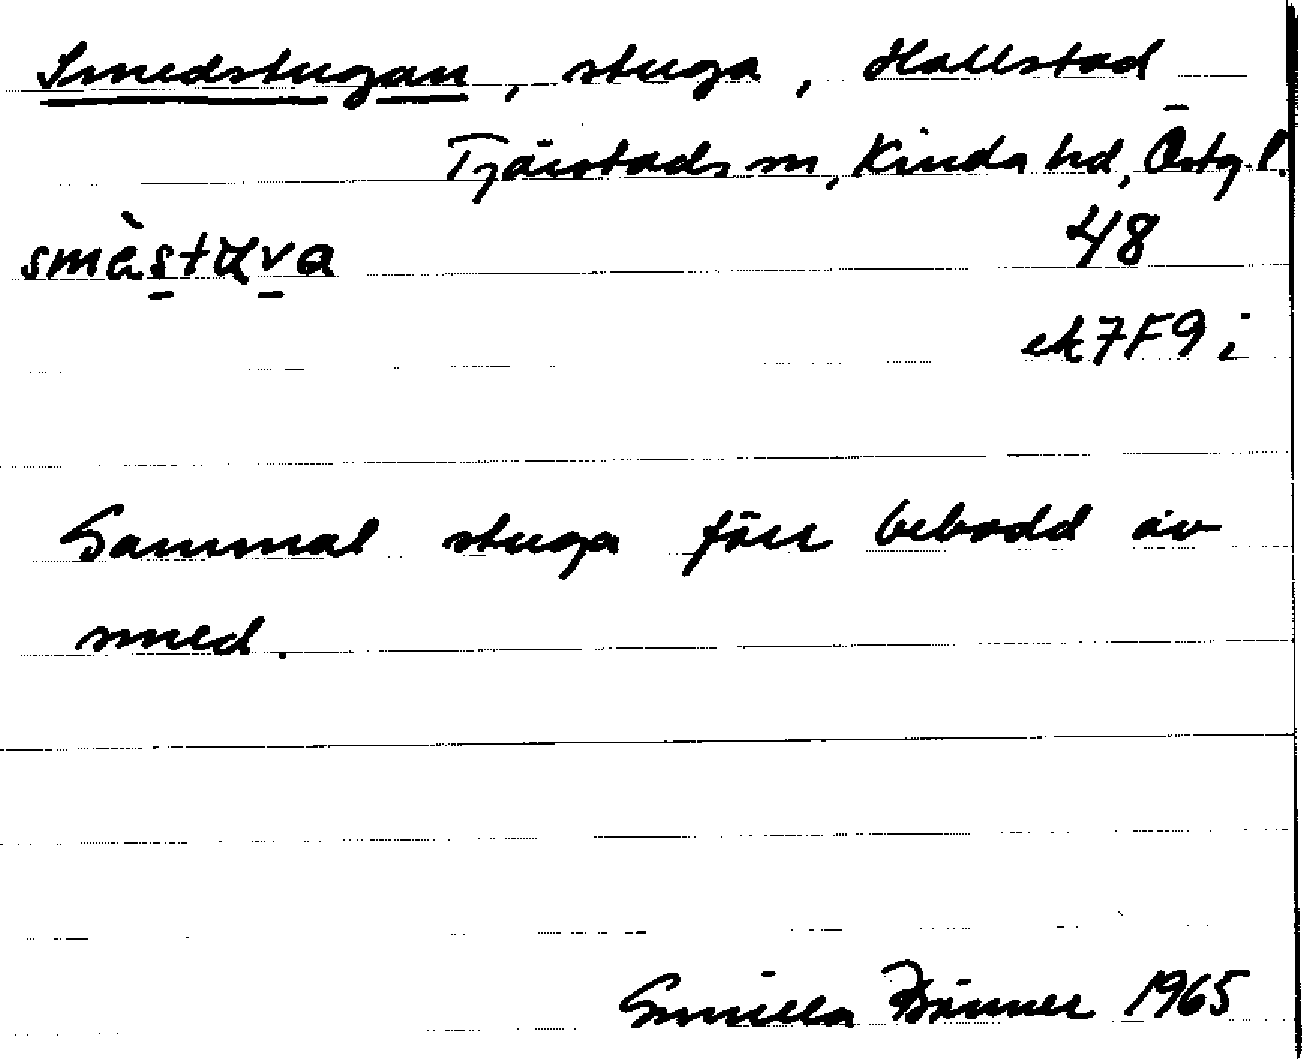 Smedstugan, stuga, Hallstad
Tjärstads sn, Kinda hd, Östg l.
smèstuva
48
ek 7F9i
Gammal stuga förr bebodd av
smed.
Gunilla 1965